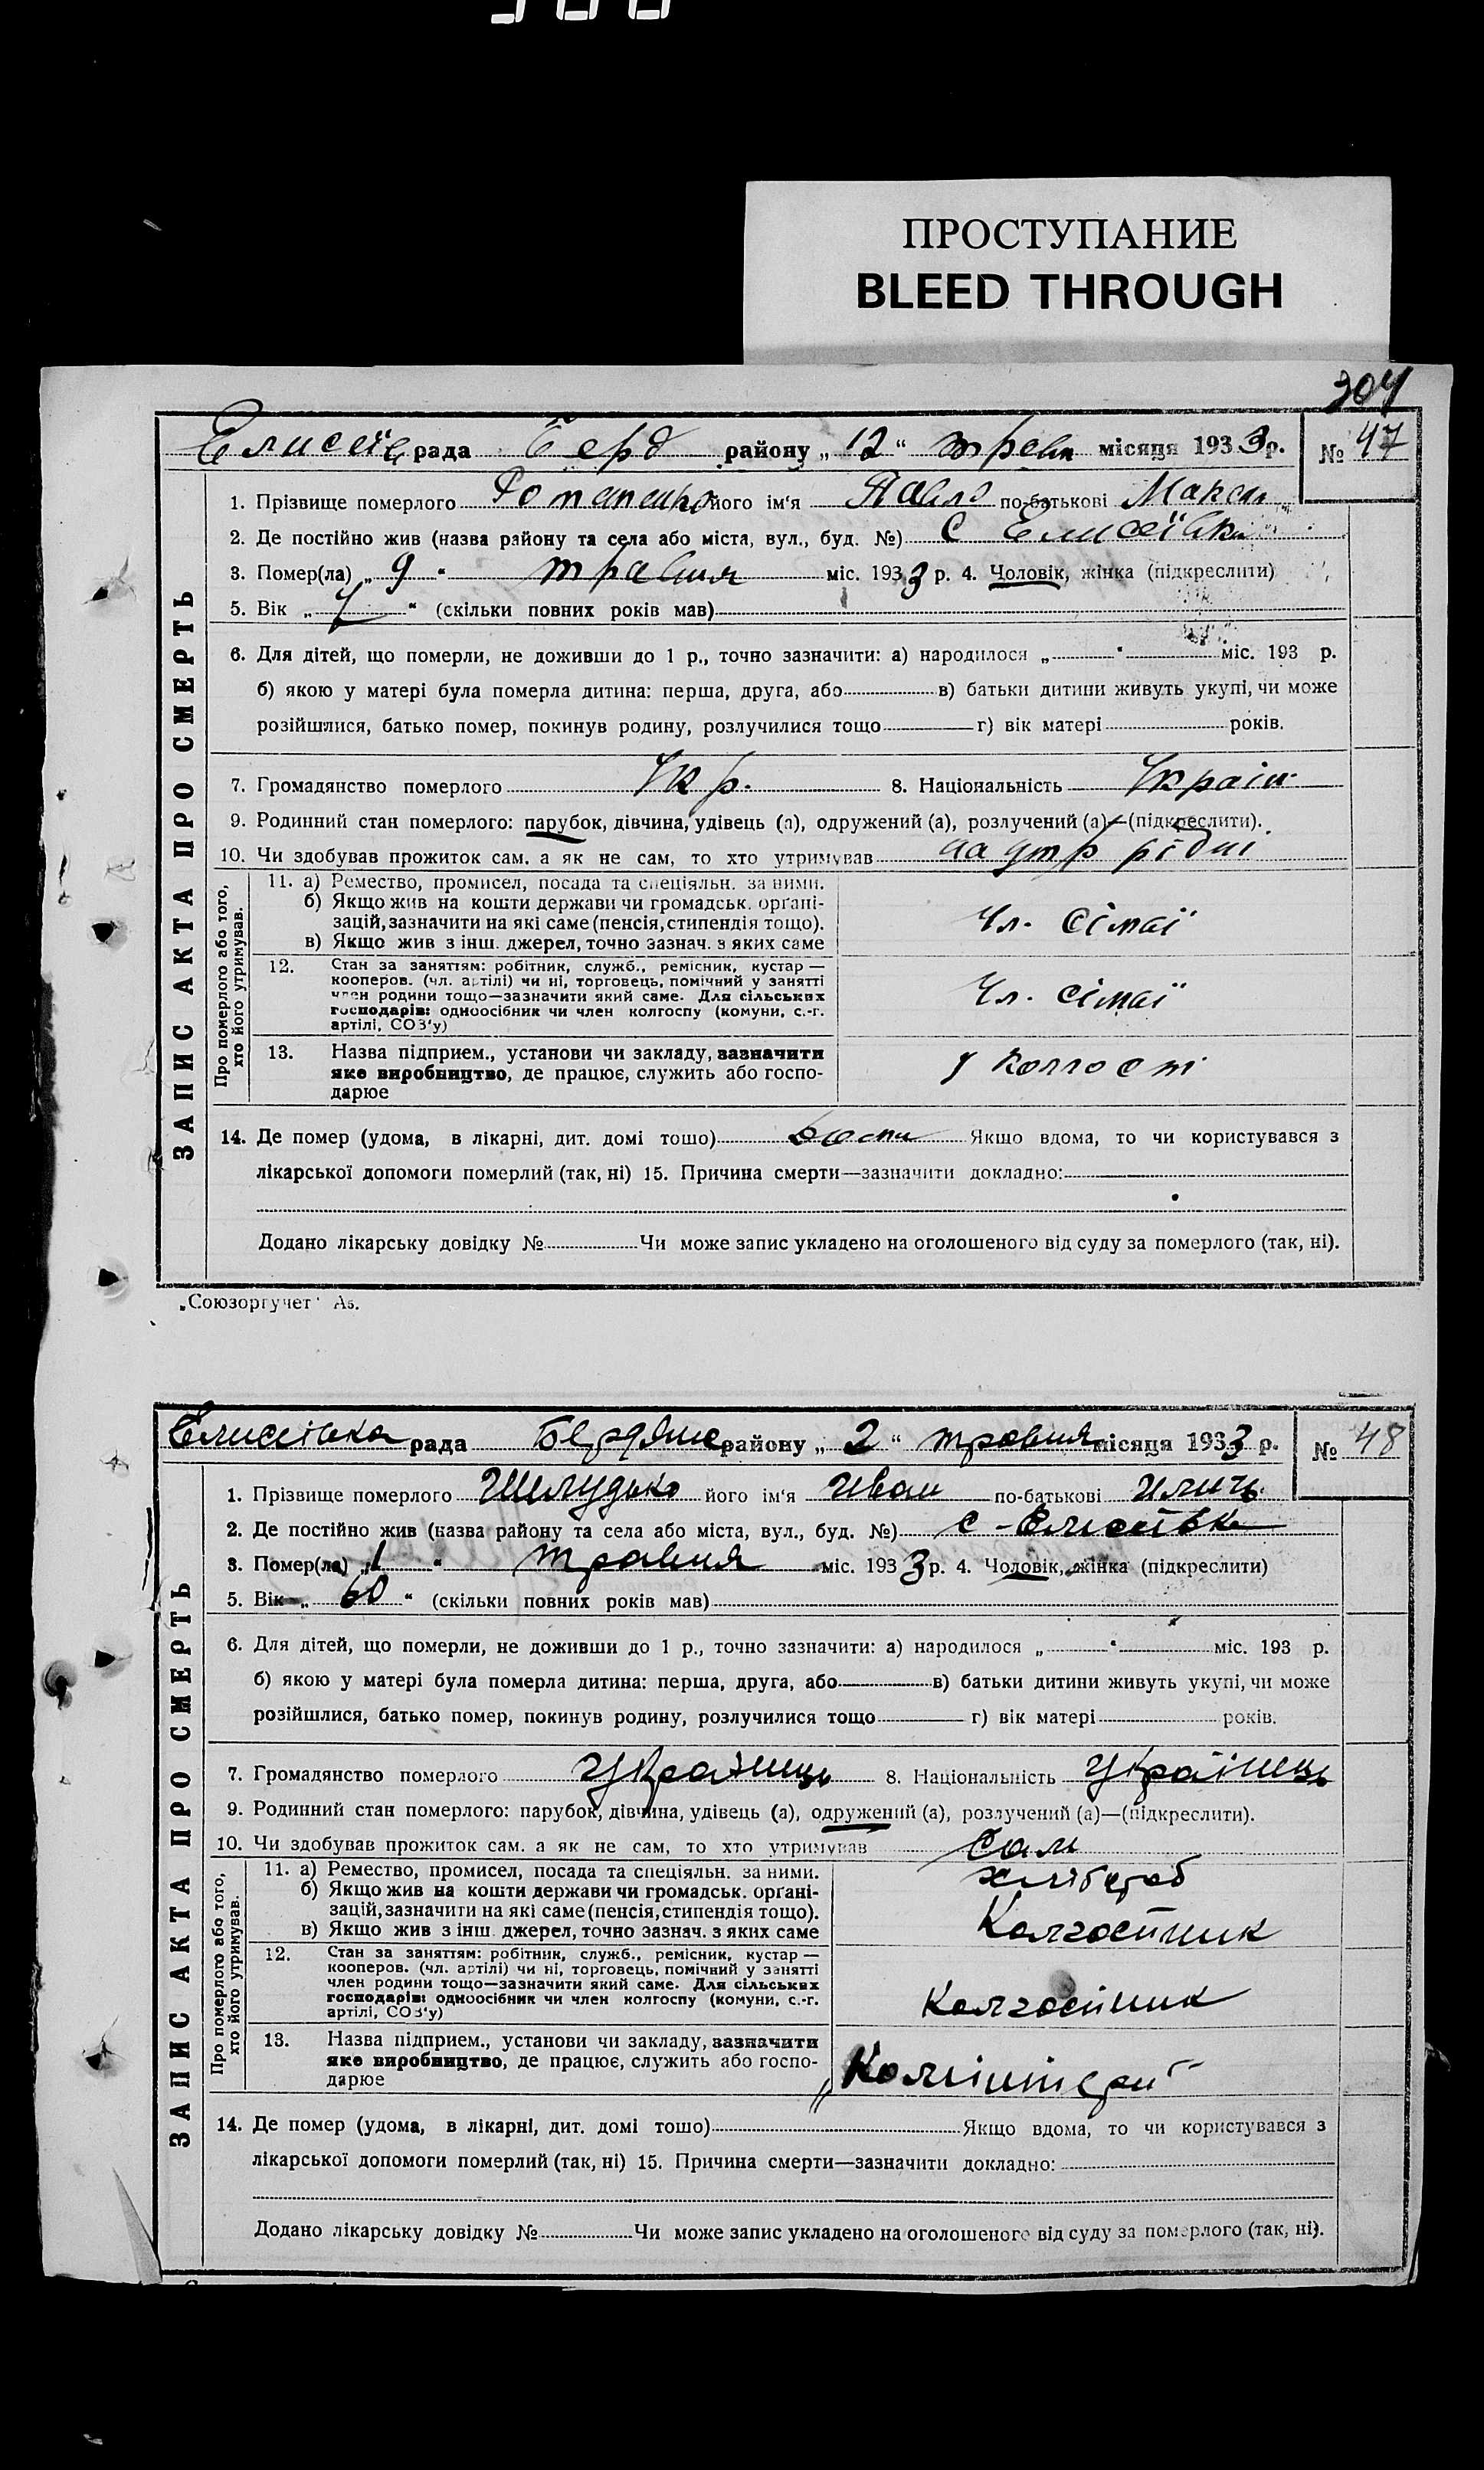 ПРОСТУПАНИЕ
BLEED THROUGH
304
Елисеїв рада Берд району „12“ трав місяця 1933 р. № 47
1. Прізвище померлого його ім'я Павло по-батькові Макси
2. Де постійно жив (назва району та села або міста, вул., буд. №) с Елисеївки
3. Помер(ла) „9“ травня міс. 1933 р. 4. Чоловік, жінка (підкреслити)
5. Вік „ “ (скільки повних років мав)
6. Для дітей, що померли, не доживши до 1 р., точно зазначити: а) народилося „ “ міс. 193 р.
б) якою у матері була померла дитина: перша, друга, або в) батьки дитини живуть укупі, чи може
розійшлися, батько помер, покинув родину, розлучилися тощо г) вік матері років.
7. Громадянство померлого Укр. 8. Національність Україн
9. Родинний стан померлого: парубок, дівчина, удівець (а), одружений (а), розлучений (а)—(підкреслити).
10. Чи здобував прожиток сам, а як не сам, то хто утримував на утр рідні
Про померлого або того, хто його утримував.
11. а) Ремество, промисел, посада та спеціяльн. за ними.
б) Якщо жив на кошти держави чи громадськ. організацій, зазначити на які саме (пенсія, стипендія тощо). Чл. сімаї
в) Якщо жив з інш. джерел, точно зазнач. з яких саме
12. Стан за заняттям: робітник, служб., ремісник, кустар —
кооперов. (чл. артілі) чи ні, торговець, помічний у занятті
член родини тощо—зазначити який саме. Для сільських Чл. сімаї
господарів: одноосібник чи член колгоспу (комуни, с.-г.
артілі, СОЗ'у)
13. Назва підприєм., установи чи закладу, зазначити
яке виробництво, де працює, служить або господарює у колгоспі
14. Де помер (удома, в лікарні, дит. домі тощо) Якщо вдома, то чи користувався з
лікарської допомоги померлий (так, ні) 15. Причина смерти—зазначити докладно:
Додано лікарську довідку № Чи може запис укладено на оголошеного від суду за померлого (так, ні).
ЗАПИС АКТА ПРО СМЕРТЬ
„Союзоргучет“ А5.
Елисеівка рада Бердянс району „2“ травня місяця 1933 р. № 48
1. Прізвище померлого Шелудько його ім'я Иван по-батькові Илич
2. Де постійно жив (назва району та села або міста, вул., буд. №) с - Елисеївка
3. Помер(ла) „1“ травня міс. 1933 р. 4. Чоловік, жінка (підкреслити)
5. Вік „60“ (скільки повних років мав)
6. Для дітей, що померли, не доживши до 1 р., точно зазначити: а) народилося „ “ міс. 193 р.
б) якою у матері була померла дитина: перша, друга, або в) батьки дитини живуть укупі, чи може
розійшлися, батько помер, покинув родину, розлучилися тощо г) вік матері років.
7. Громадянство померлого Українець 8. Національність Українець
9. Родинний стан померлого: парубок, дівчина, удівець (а), одружений (а), розлучений (а)—(підкреслити).
10. Чи здобував прожиток сам, а як не сам, то хто утримував Сам
Про померлого або того, хто його утримував.
11. а) Ремество, промисел, посада та спеціяльн. за ними. хлібороб
б) Якщо жив на кошти держави чи громадськ. організацій, зазначити на які саме (пенсія, стипендія тощо).
в) Якщо жив з інш. джерел, точно зазнач. з яких саме Колгоспник
12. Стан за заняттям: робітник, служб., ремісник, кустар —
кооперов. (чл. артілі) чи ні, торговець, помічний у занятті
член родини тощо—зазначити який саме. Для сільських
господарів: одноосібник чи член колгоспу (комуни, с.-г. Колгоспник
артілі, СОЗ'у)
13. Назва підприєм., установи чи закладу, зазначити
яке виробництво, де працює, служить або господарює „Комінтерн“
14. Де помер (удома, в лікарні, дит. домі тощо) Якщо вдома, то чи користувався з
лікарської допомоги померлий (так, ні) 15. Причина смерти—зазначити докладно:
Додано лікарську довідку № Чи може запис укладено на оголошеного від суду за померлого (так, ні).
ЗАПИС АКТА ПРО СМЕРТЬ